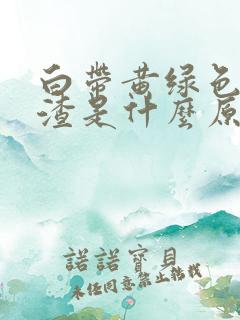 白帶黄绿色
渣是什麽原
諾諾寶貝
未经同意禁止转载